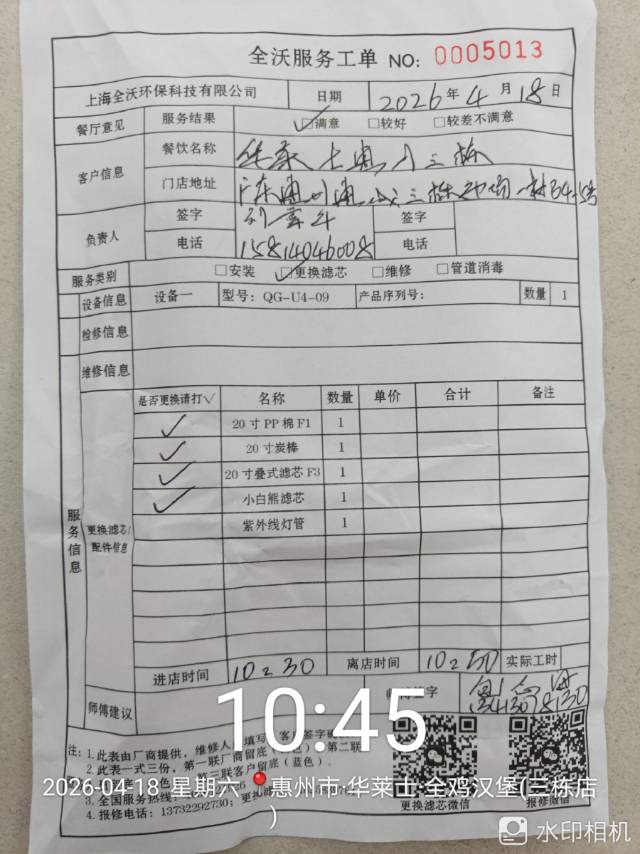 全沃服务工单 NO: 0005013
上海全沃环保科技有限公司 日期 2026年4月18日
餐厅意见 服务结果 ☑满意 □较好 □较差不满意
客户信息 餐饮名称 华莱士
门店地址 广东惠州惠
负责人 签字 签字
电话 15814046008 电话
服务类别 □安装 ☑更换滤芯 □维修 □管道消毒
设备信息 设备一 型号: QG-U4-09 产品序列号: 数量 1
检修信息
维修信息
服务信息
更换滤芯/配件信息
是否更换请打√ 名称 数量 单价 合计 备注
✓ 20寸PP棉F1 1
✓ 20寸炭棒 1
✓ 20寸叠式滤芯F3 1
✓ 小白熊滤芯 1
紫外线灯管 1
进店时间 10:30 离店时间 10:50 实际工时
师傅建议 签字
10:45
注: 1.此表由厂商提供, 维修人 填写 客户签字
2.此表一式三份, 第一联厂商留底 第二联
第三联客户留底(蓝色)。
3.全国服务热线:
4.报修电话: 13732292730;
更换滤芯微信 报修微信
2026-04-18 星期六 惠州市·华莱士·全鸡汉堡(三栋店
)
水印相机